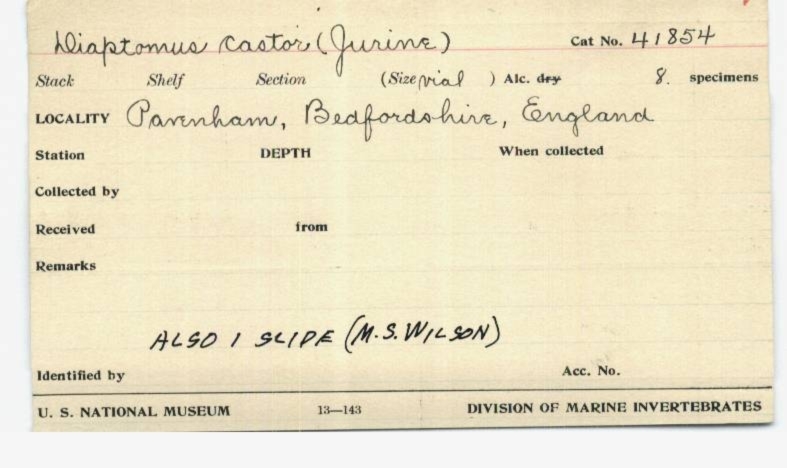 Diaptomus castor (Jurine) Cat No. 41854
Stack Shelf Section (Size vial ) Alc. dry 8. specimens
LOCALITY Pavenham, Bedfordshire, England
Station DEPTH When collected
Collected by
Received from
Remarks
ALSO 1 SLIDE (M.S. WILSON)
Identified by Acc. No.
U. S. NATIONAL MUSEUM 13—143 DIVISION OF MARINE INVERTEBRATES